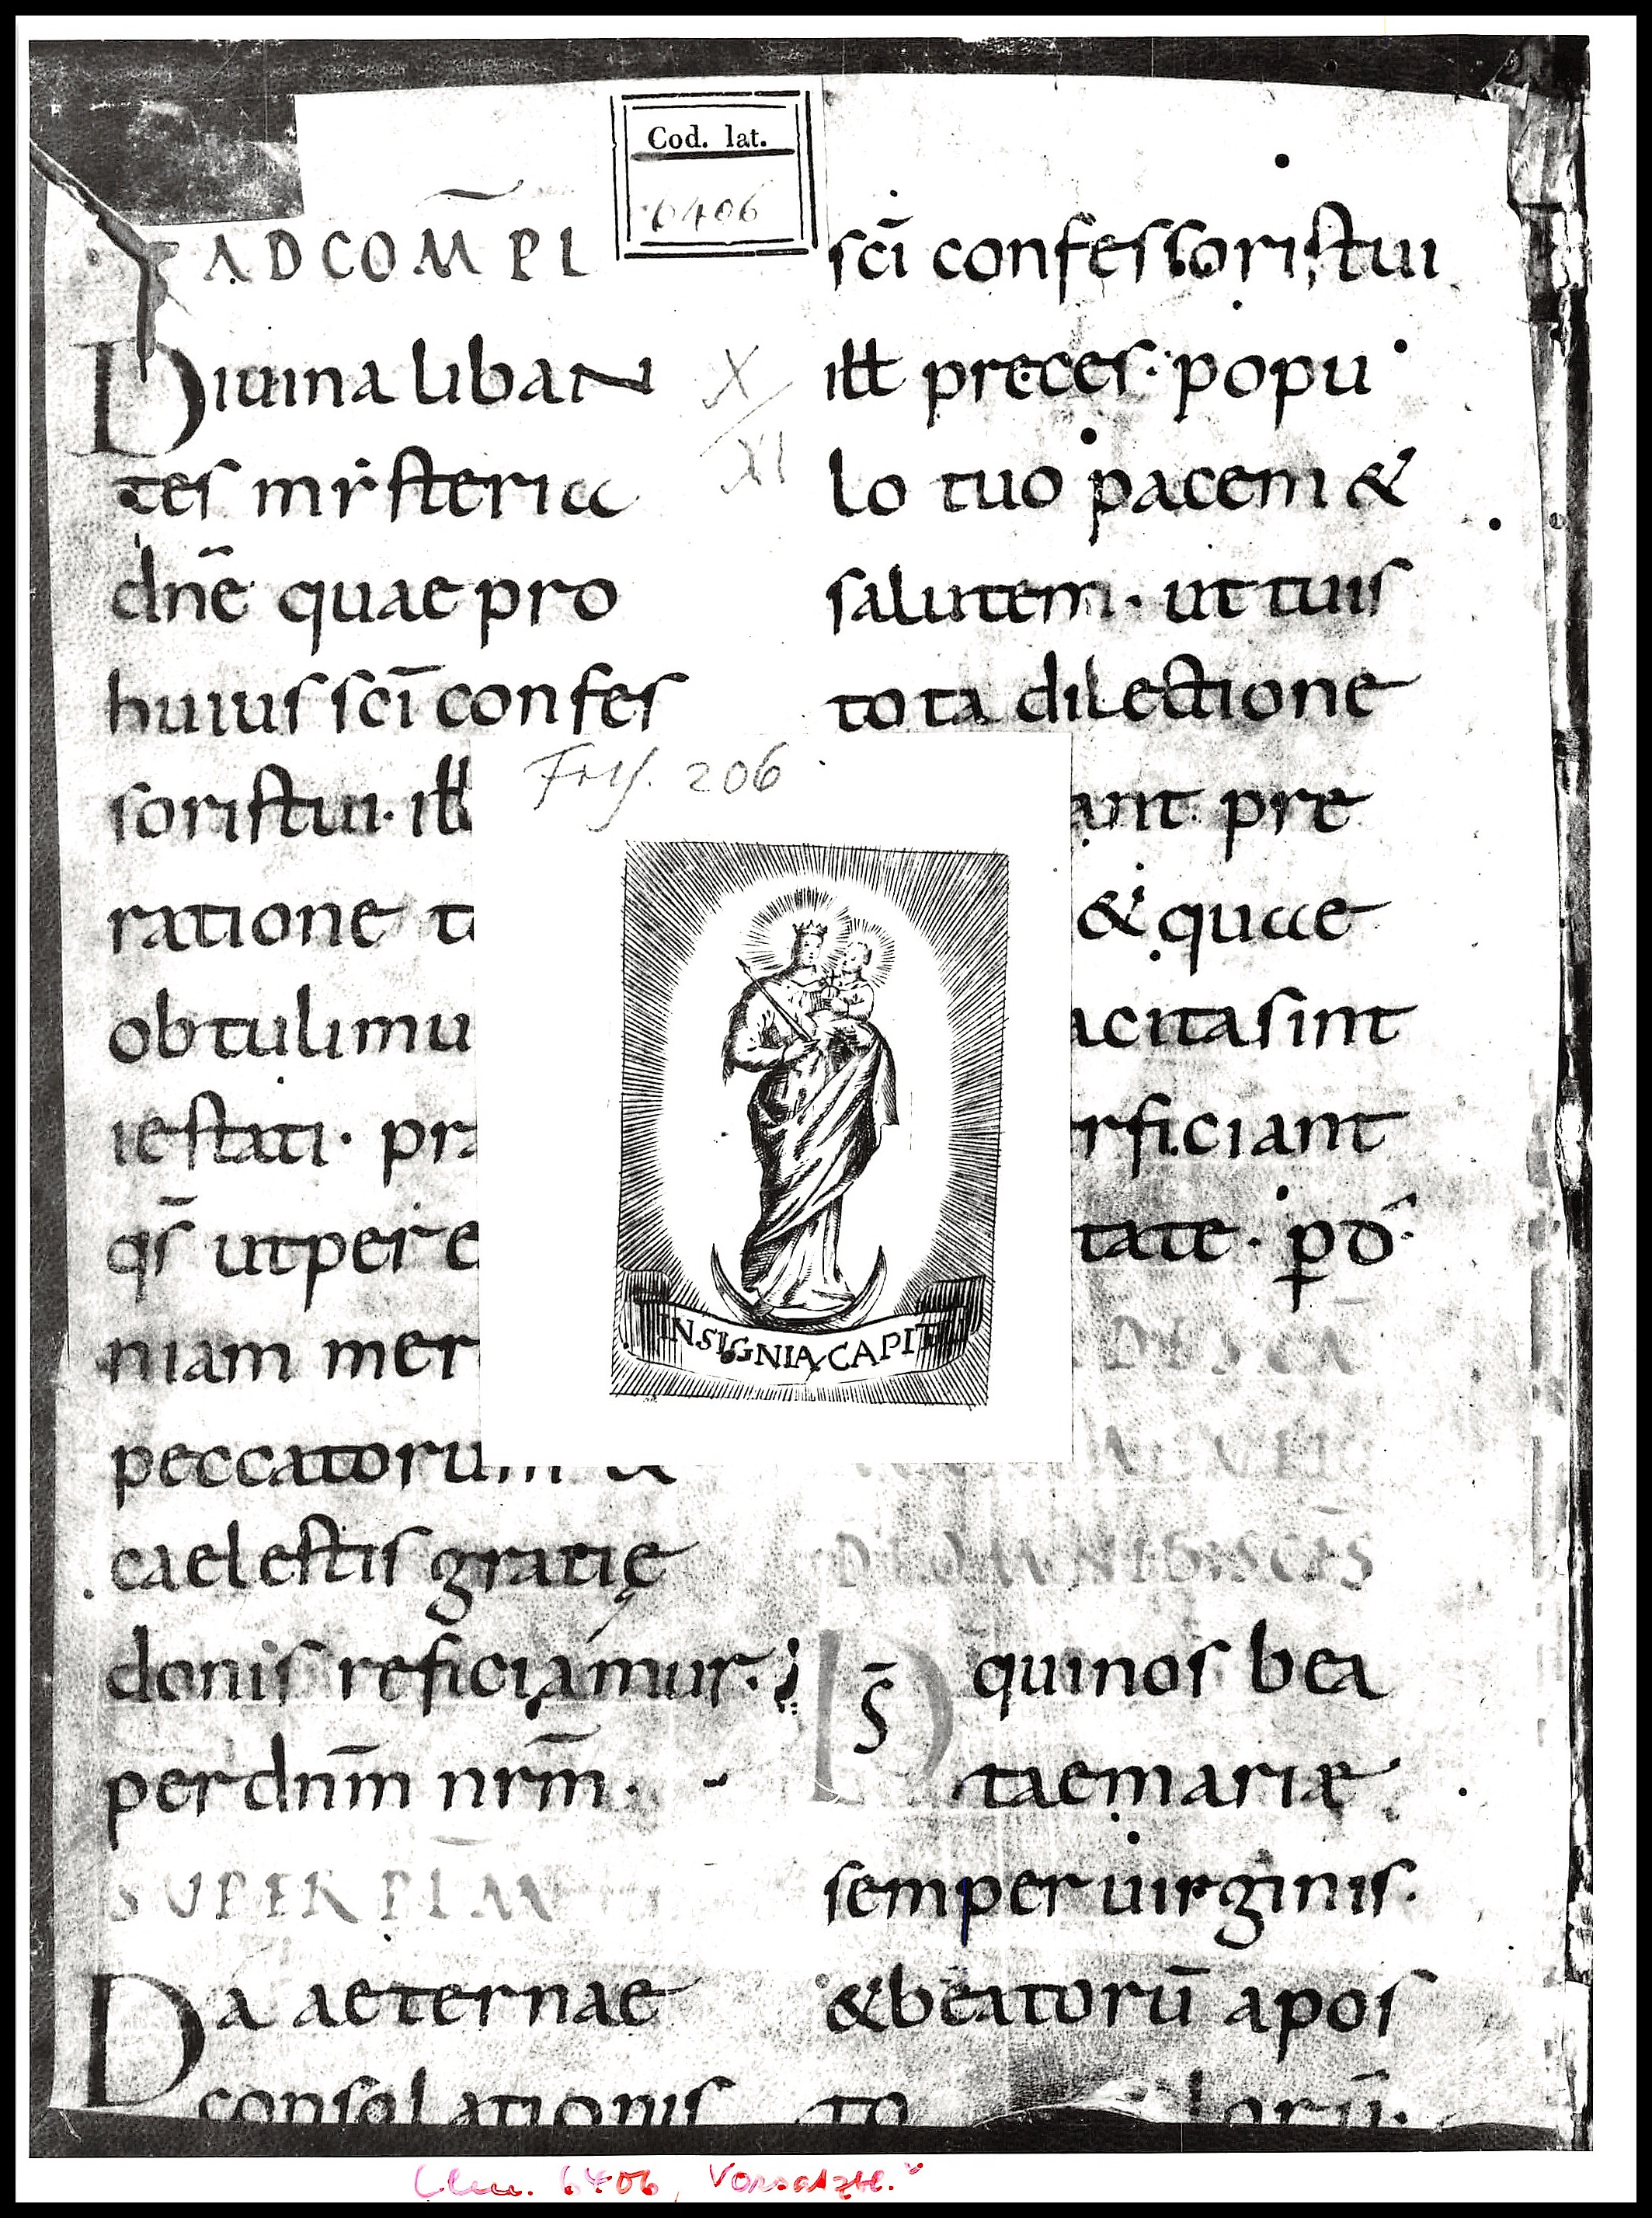 Cod. lat.
6406
AD COM̅ PL
Diuina liban
tes mẏsteria
dn̄e quae pro
huius sc̄i confes
soris tui· ill̵
ratione t
obtulimu
iestati· pra
qs̄ ut per e
niam mer
peccatorum &
caelestis gratię
donis reficiamur·
per dnm̄ nrm̄·
SUPER PL̄M
Da aeternae
consolationis
X
XI
sc̄i confessoris tui
ill̵ preces· popu
lo tuo pacem &
salutem· ut tuis
tota dilectione
ant pre
& quae
acita sint
rficiant
tate· p̱ d̄·
D̄s qui nos bea
tae mariae
semper uirginis·
& beatorū apos
to lorū·
Fris. 206
INSIGNIA CAPIT
Clm. 6406, Vorsatzbl.